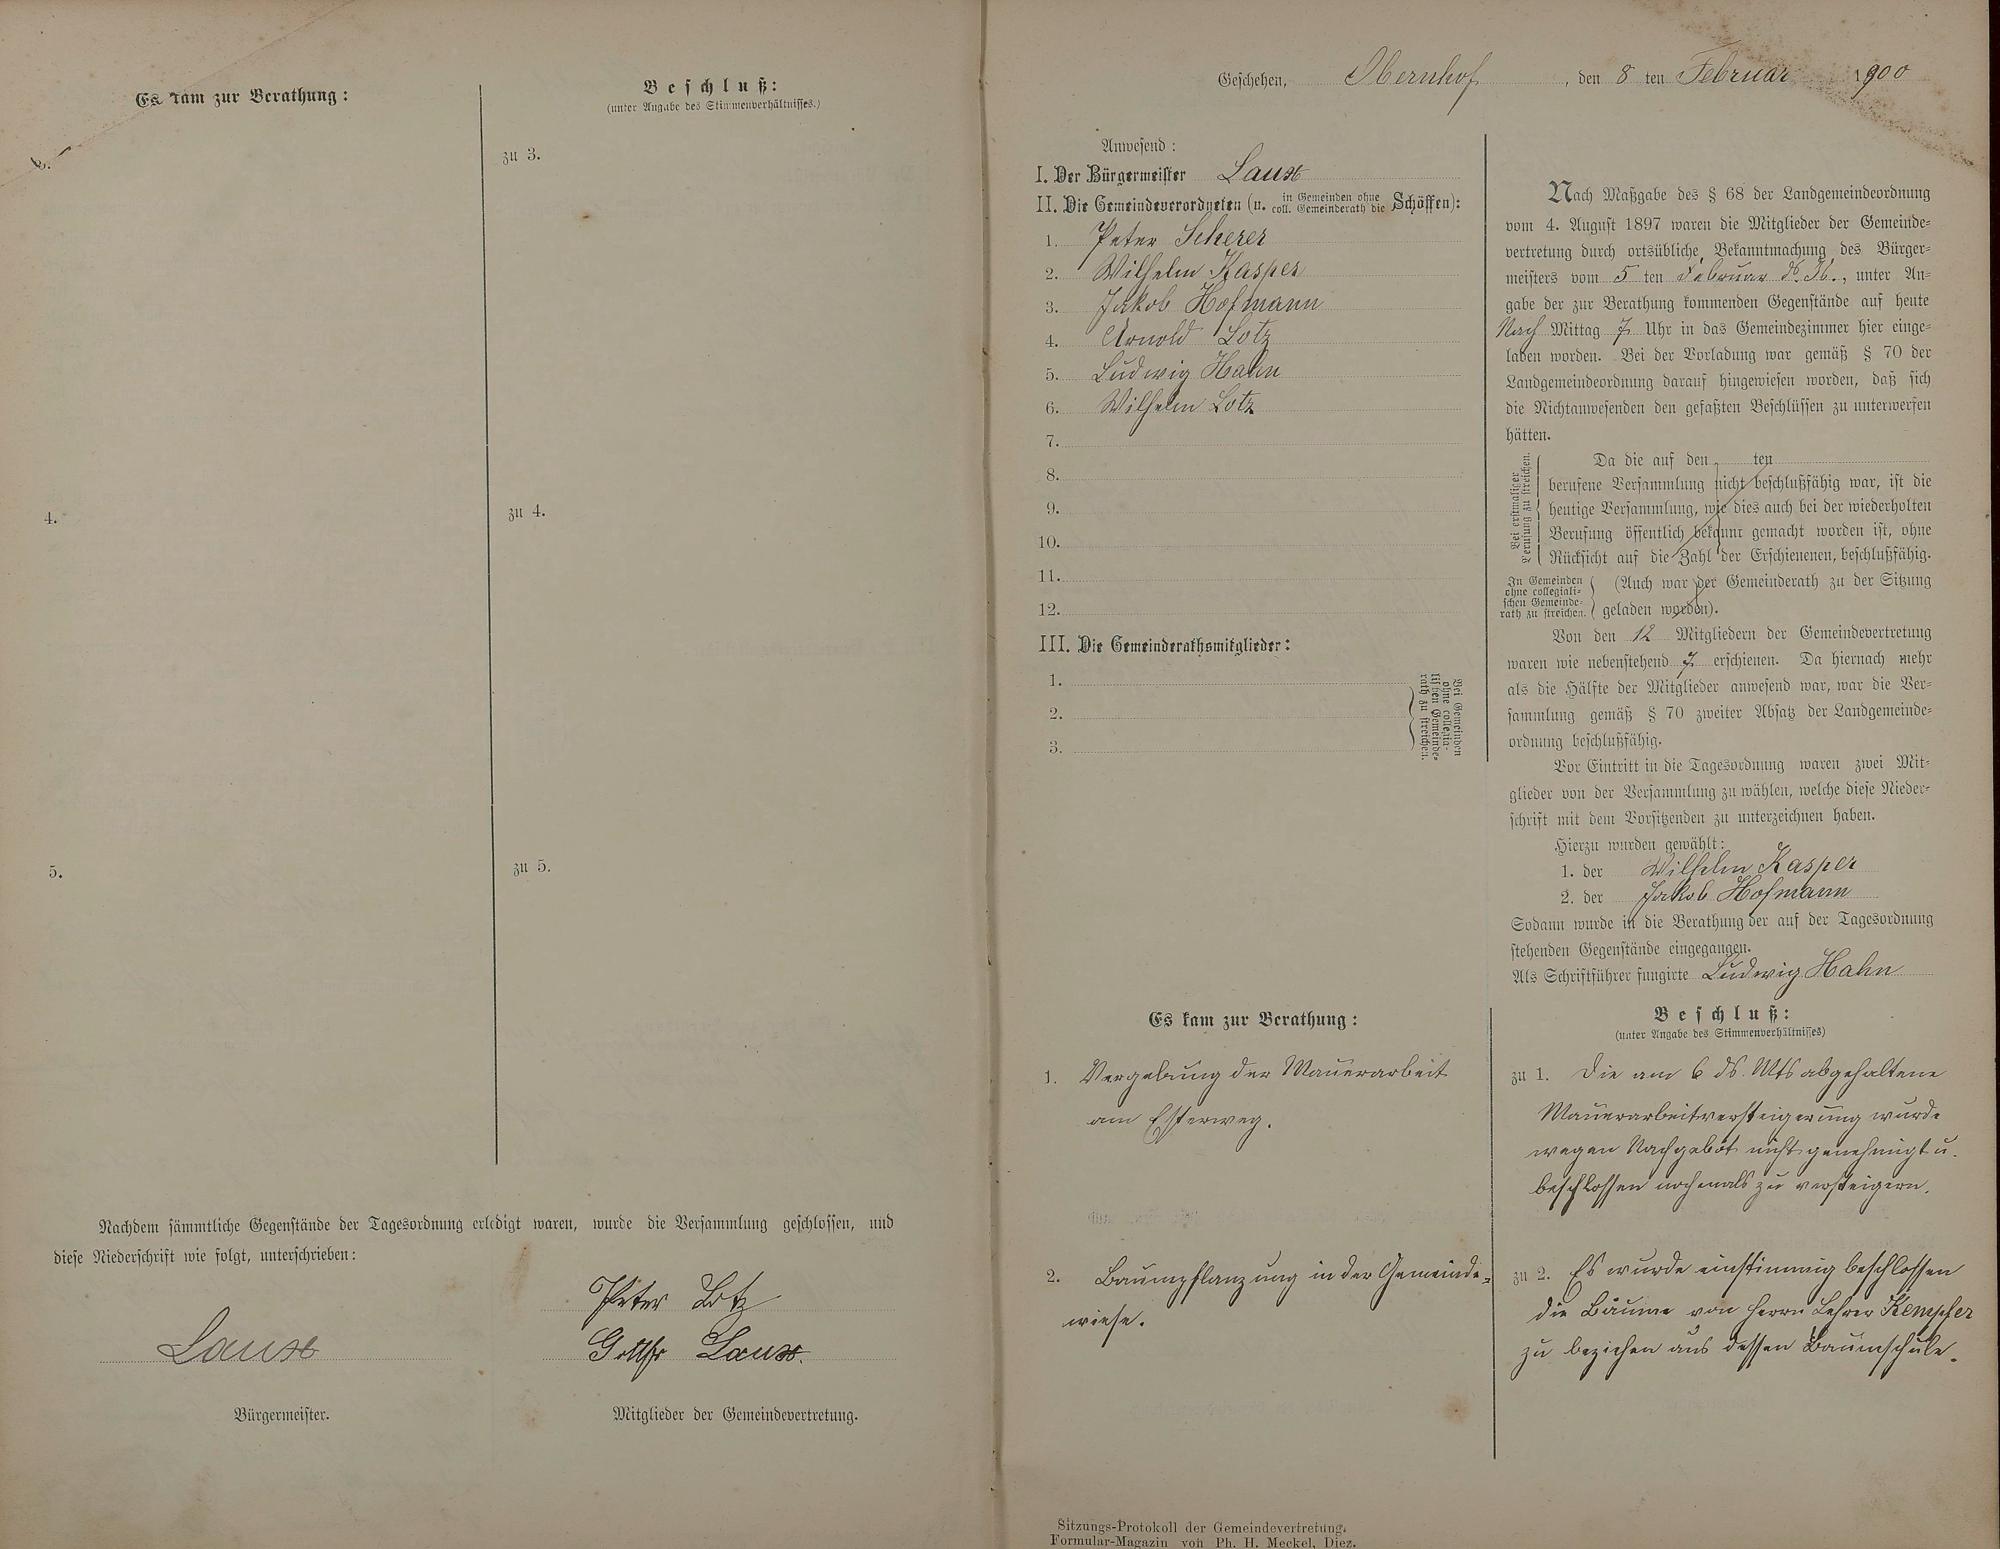 Es kam zur Berathung:
Beschluß:
(unter Angabe des Stimmenverhältnisses.)
3.
zu 3.
4.
zu 4.
5.
zu 5.
Nachdem sämmtliche Gegenstände der Tagesordnung erledigt waren, wurde die Versammlung geschlossen, und
diese Niederschrift wie folgt, unterschrieben:
Peter Lotz
Laux
Laux.
Bürgermeister.
Mitglieder der Gemeindevertretung.
Geschehen, Obernhof, den 8 ten Februar 1900
Anwesend:
I. Der Bürgermeister Laux
II. Die Gemeindeverordneten (u. in Gemeinden ohne coll. Gemeinderath die Schöffen):
1. Peter Scherer
2. Wilhelm Kasper
3. Jakob Hofmann
4. Arnold Lotz
5. Ludwig Hahn
6. Wilhelm Lotz
7.
8.
9.
10.
11.
12.
III. Die Gemeinderathsmitglieder:
1.
2.
3.
Bei Gemeinden
ohne collegia-
lischen Gemeinde-
rath zu streichen.
Nach Maßgabe des § 68 der Landgemeindeordnung
vom 4. August 1897 waren die Mitglieder der Gemeinde-
vertretung durch ortsübliche Bekanntmachung des Bürger-
meisters vom 5 ten Februar ds. Js., unter An-
gabe der zur Berathung kommenden Gegenstände auf heute
Nach Mittag 7 Uhr in das Gemeindezimmer hier einge-
laden worden. Bei der Vorladung war gemäß § 70 der
Landgemeindeordnung darauf hingewiesen worden, daß sich
die Nichtanwesenden den gefaßten Beschlüssen zu unterwerfen
hätten.
Bei erstmaliger
Berufung zu streichen.
Da die auf den ten
berufene Versammlung nicht beschlußfähig war, ist die
heutige Versammlung, wie dies auch bei der wiederholten
Berufung öffentlich bekannt gemacht worden ist, ohne
Rücksicht auf die Zahl der Erschienenen, beschlußfähig.
In Gemeinden
ohne collegiali-
schen Gemeinde-
rath zu streichen.
(Auch war der Gemeinderath zu der Sitzung
geladen worden).
Von den 12 Mitgliedern der Gemeindevertretung
waren wie nebenstehend 7 erschienen. Da hiernach mehr
als die Hälfte der Mitglieder anwesend war, war die Ver-
sammlung gemäß § 70 zweiter Absatz der Landgemeinde-
ordnung beschlußfähig.
Vor Eintritt in die Tagesordnung waren zwei Mit-
glieder von der Versammlung zu wählen, welche diese Nieder-
schrift mit dem Vorsitzenden zu unterzeichnen haben.
Hierzu wurden gewählt:
1. der Wilhelm Kasper
2. der Jakob Hofmann
Sodann wurde in die Berathung der auf der Tagesordnung
stehenden Gegenstände eingegangen.
Als Schriftführer fungirte Ludwig Hahn
Es kam zur Berathung:
Beschluß:
(unter Angabe des Stimmenverhältnisses)
1. Vergebung der Mauerarbeit
am Esterweg.
zu 1. Die am 6 ds. Mts abgehaltene
Mauerarbeitversteigerung wurde
wegen Nachgebot nicht genehmigt u.
beschlossen nochmals zu versteigern.
2. Baumpflanzung in der Gemeinde-
wiese.
zu 2. Es wurde einstimmig beschlossen
die Bäume von Herrn Lehrer Kempfer
zu beziehen aus dessen Baumschule.
Sitzungs-Protokoll der Gemeindevertretung.
Formular-Magazin von Ph. H. Meckel, Diez.